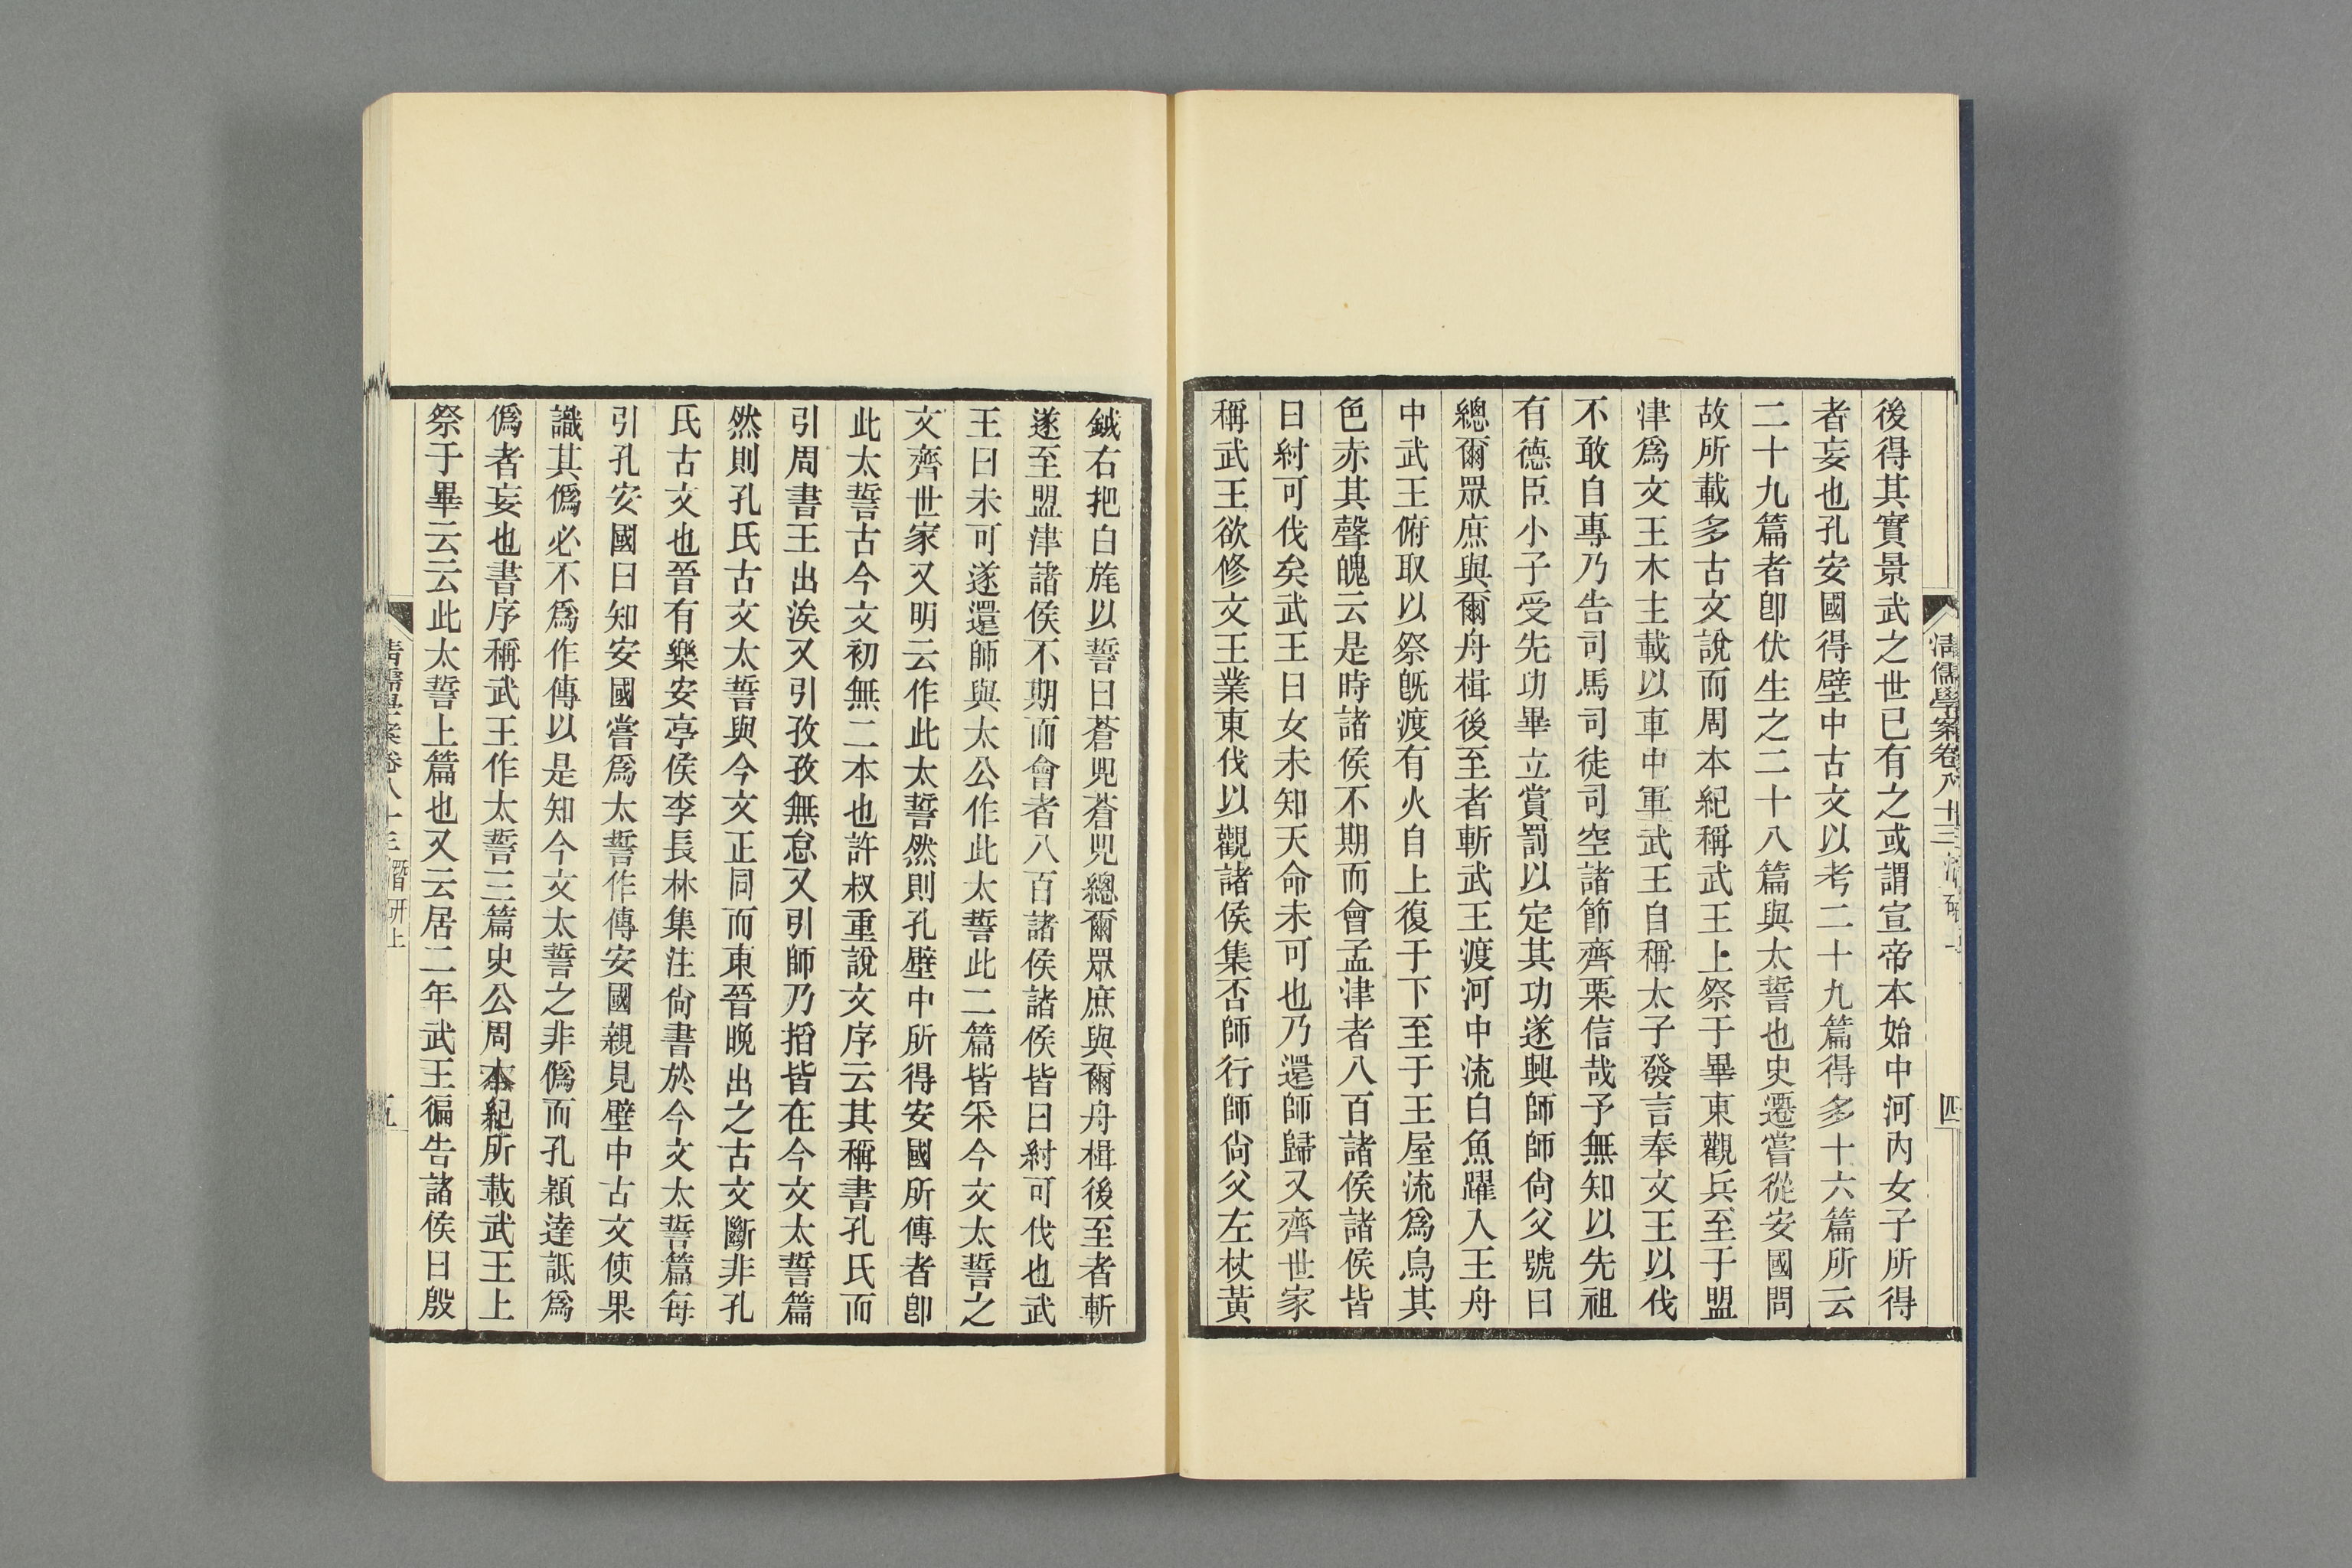 後得其實景武之世已有之或謂宣帝本始中河內女子所得
者妄也孔安國得壁中古文以考二十九篇得多十六篇所云
二十九篇者卽伏生之二十八篇與太誓也史遷嘗從安國問
故所載多古文說而周本紀稱武王上祭于畢東觀兵至于盟
津爲文王木主載以車中軍武王自稱太子發言奉文王以伐
不敢自專乃告司馬司徒司空諸節齊栗信哉予無知以先祖
有德臣小子受先功畢立賞罰以定其功遂興師師尙父號曰
總爾眾庶與爾舟楫後至者斬武王渡河中流白魚躍入王舟
中武王俯取以祭旣渡有火自上復于下至于王屋流爲烏其
色赤其聲魄云是時諸侯不期而會孟津者八百諸侯諸侯皆
曰紂可伐矣武王曰女未知天命未可也乃還師歸又齊世家
稱武王欲修文王業東伐以觀諸侯集否師行師尙父左杖黃
清儒學案卷八十三
四
鉞右把白旄以誓曰蒼兕蒼兕總爾眾庶與爾舟楫後至者斬
遂至盟津諸侯不期而會者八百諸侯諸侯皆曰紂可伐也武
王曰未可遂還師與太公作此太誓此二篇皆采今文太誓之
文齊世家又明云作此太誓然則孔壁中所得安國所傳者卽
此太誓古今文初無二本也許叔重說文序云其稱書孔氏而
引周書王出涘又引孜孜無怠又引師乃搯皆在今文太誓篇
然則孔氏古文太誓與今文正同而東晉晚出之古文斷非孔
氏古文也晉有樂安亭侯李長林集注尙書於今文太誓篇每
引孔安國曰知安國嘗爲太誓作傳安國親見壁中古文使果
識其僞必不爲作傳以是知今文太誓之非僞而孔穎達詆爲
僞者妄也書序稱武王作太誓三篇史公周本紀所載武王上
祭于畢云云此太誓上篇也又云居二年武王徧告諸侯曰殷
清儒學案卷八十三 潛研上
五